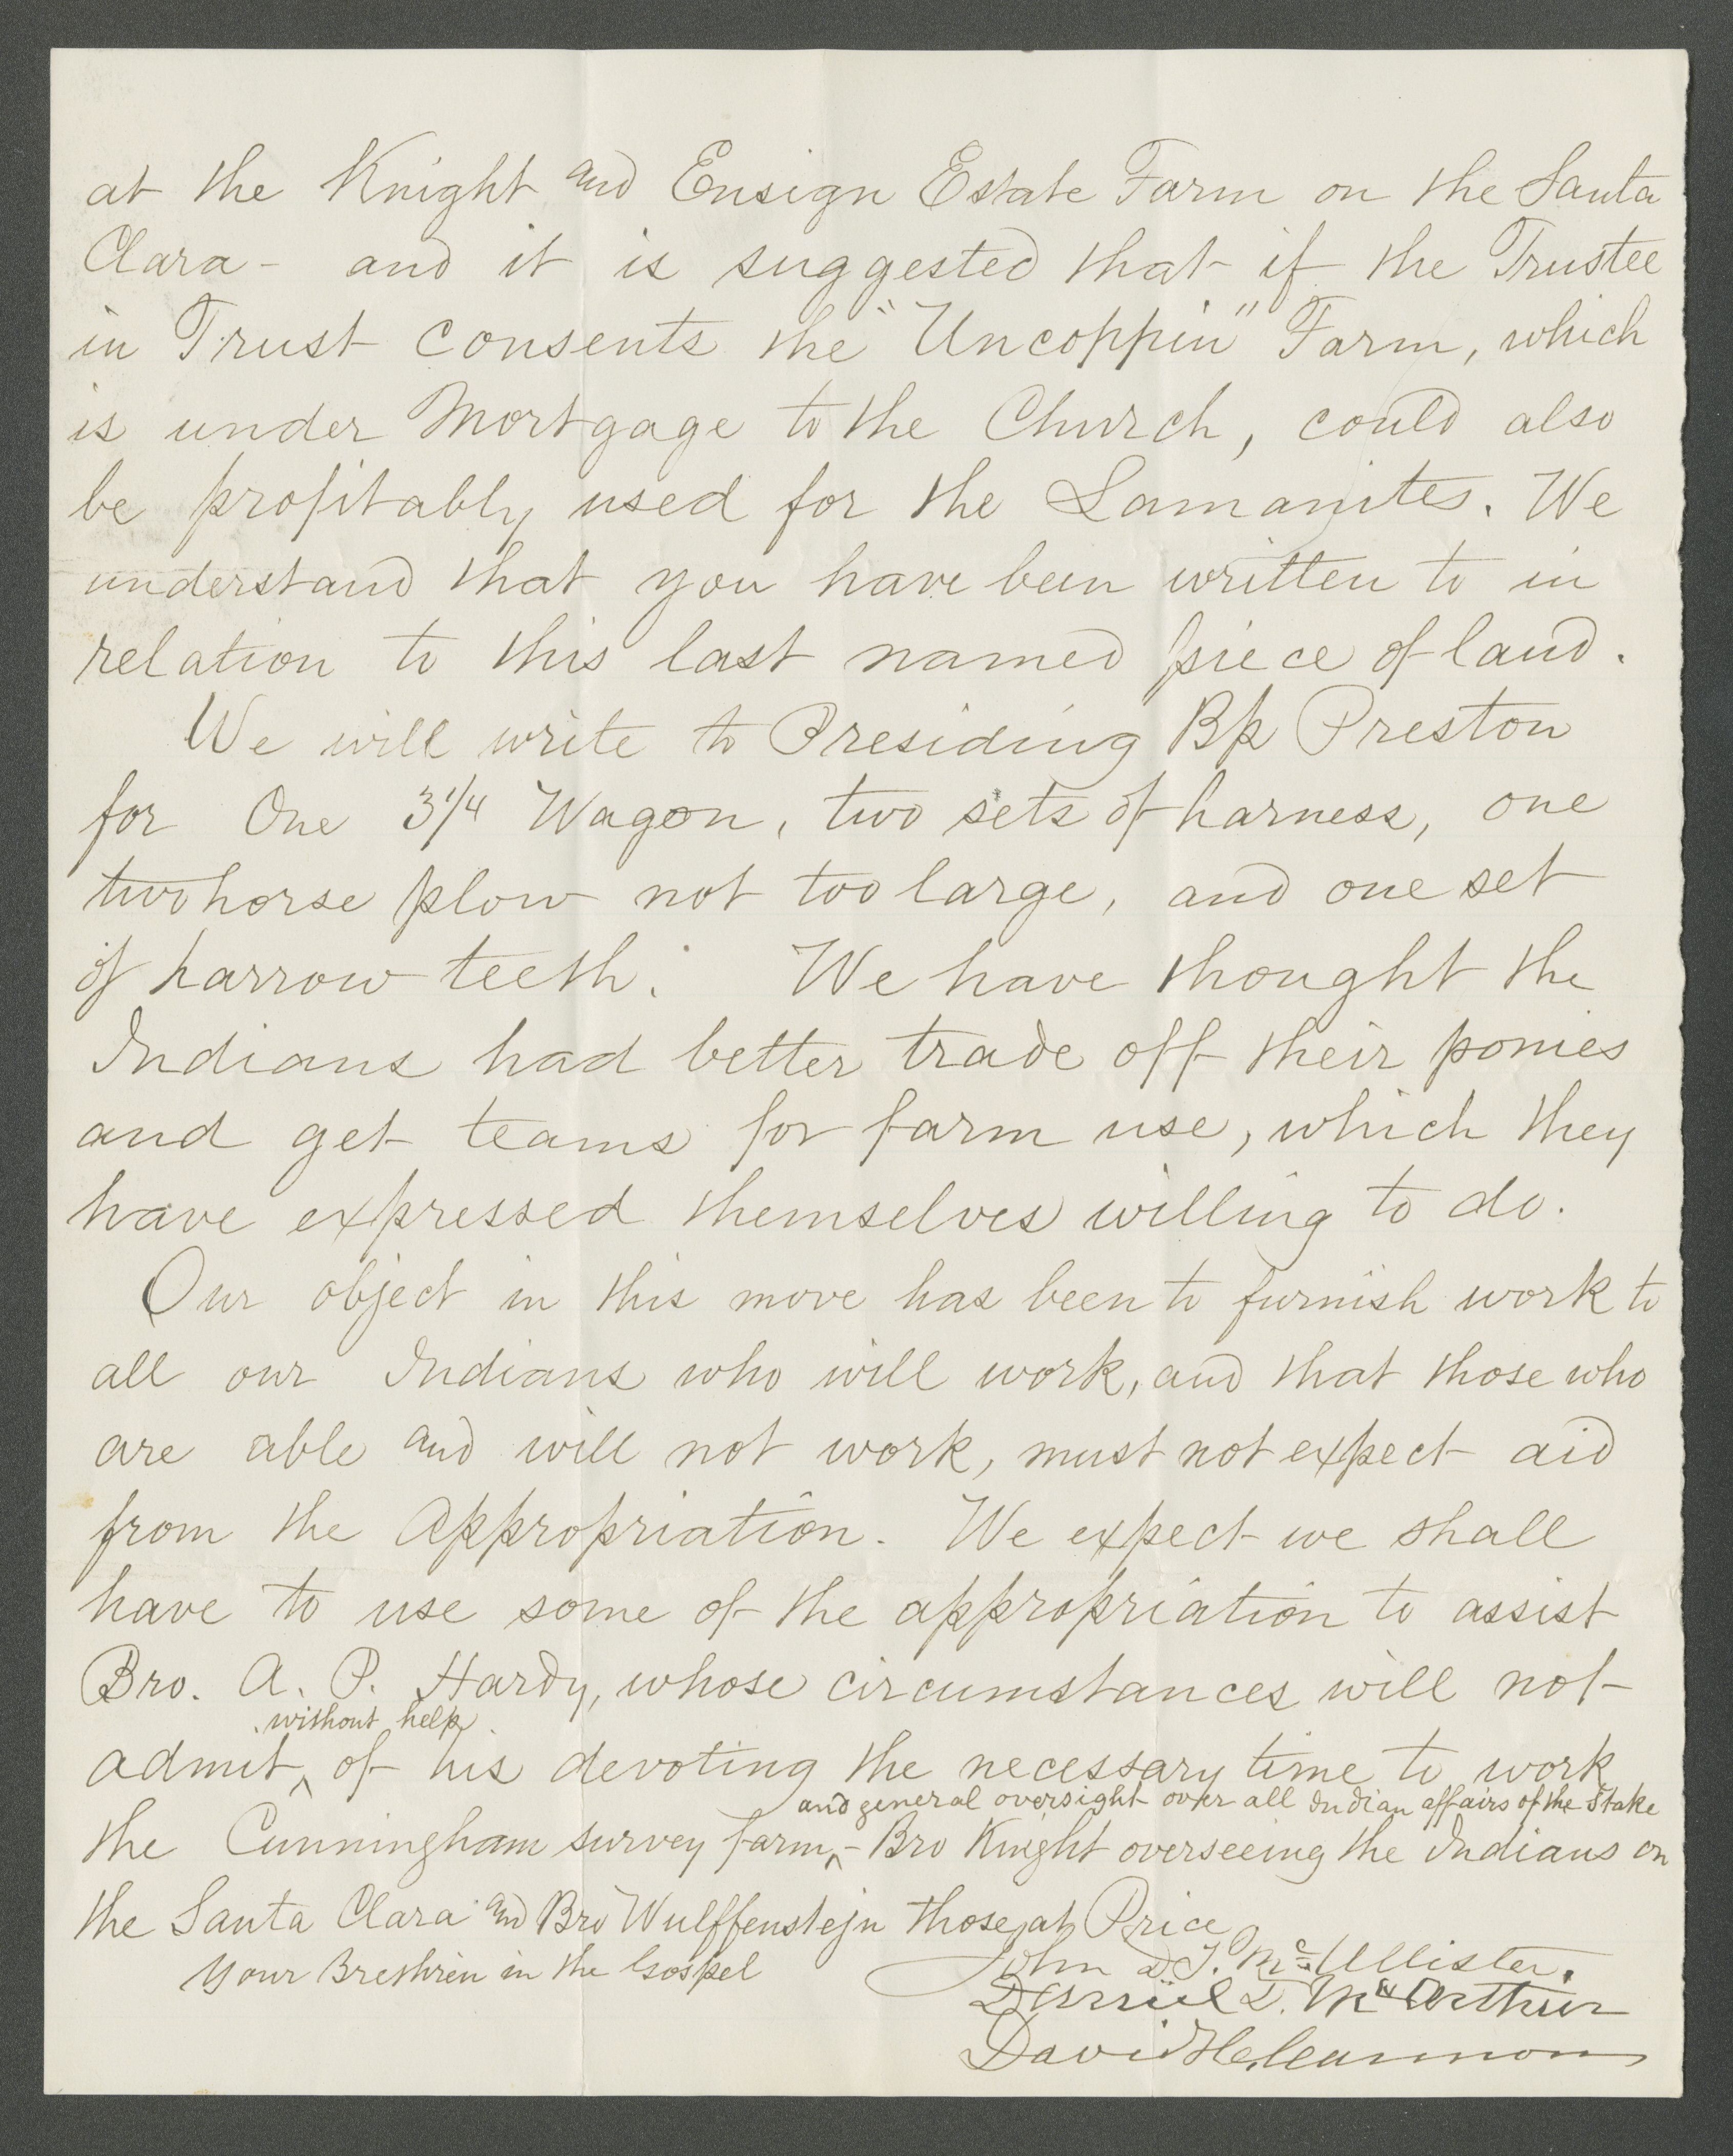 at the Knight and Ensign Estate Farm on the Santa
Clara - and it is suggested that if the Trustee
in Trust consents the "Uncoppin" Farm, which
is under Mortgage to the Church, could also
be profitably used for the Lamanites. We
understand that you have been written to in
relation to this last named piece of land.
We will write to Presiding Bp Preston
for One 3 1/4 Wagon, two sets of harness, one
two horse plow not too large, and one set
of harrow teeth. We have thought the
Indians had better trade off their ponies
and get teams for farm use, which they
have expressed themselves willing to do.
Our object in this move has been to furnish work to
all our Indians who will work, and that those who
are able and will not work, must not expect aid
from the Appropriation. We expect we shall
have to use some of the appropriation to assist
Bro. A. P. Hardy, whose circumstances will not
without help
admit ‸ of his devoting the necessary time to work
and general oversight over all Indian affairs of the Stake
the Cunningham survey farm, ‸ - Bro Knight overseeing the Indians on
the Santa Clara and Bro Wulffenstejn those at Price
Your Brethren in the Gospel
John D. T. McAllister.
Daniel D. McArthur
David H. Cannon